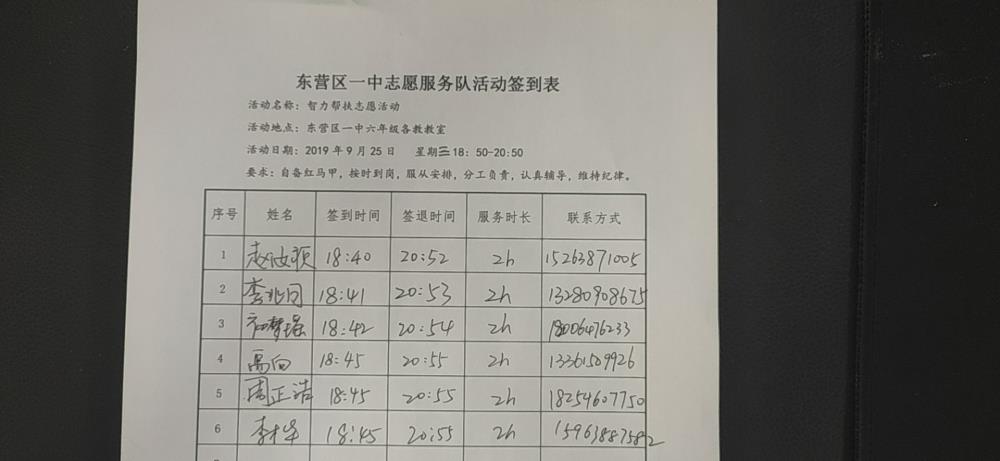 东营区一中志愿服务队活动签到表
活动名称：智力帮扶志愿活动
活动地点：东营区一中六年级各教教室
活动日期：2019年9月25日 星期三18：50-20:50
要求：自备红马甲，按时到岗，服从安排，分工负责，认真辅导，维持纪律。
序号 姓名 签到时间 签退时间 服务时长 联系方式
1 赵汝颖 18:40 20:52 2h 15263871005
2 李兆同 18:41 20:53 2h 13280908675
3 18:42 20:54 2h 18006476233
4 高向 18:45 20:55 2h 13361509926
5 周正浩 18:45 20:55 2h 18254607750
6 李 18:45 20:55 2h 15963887582